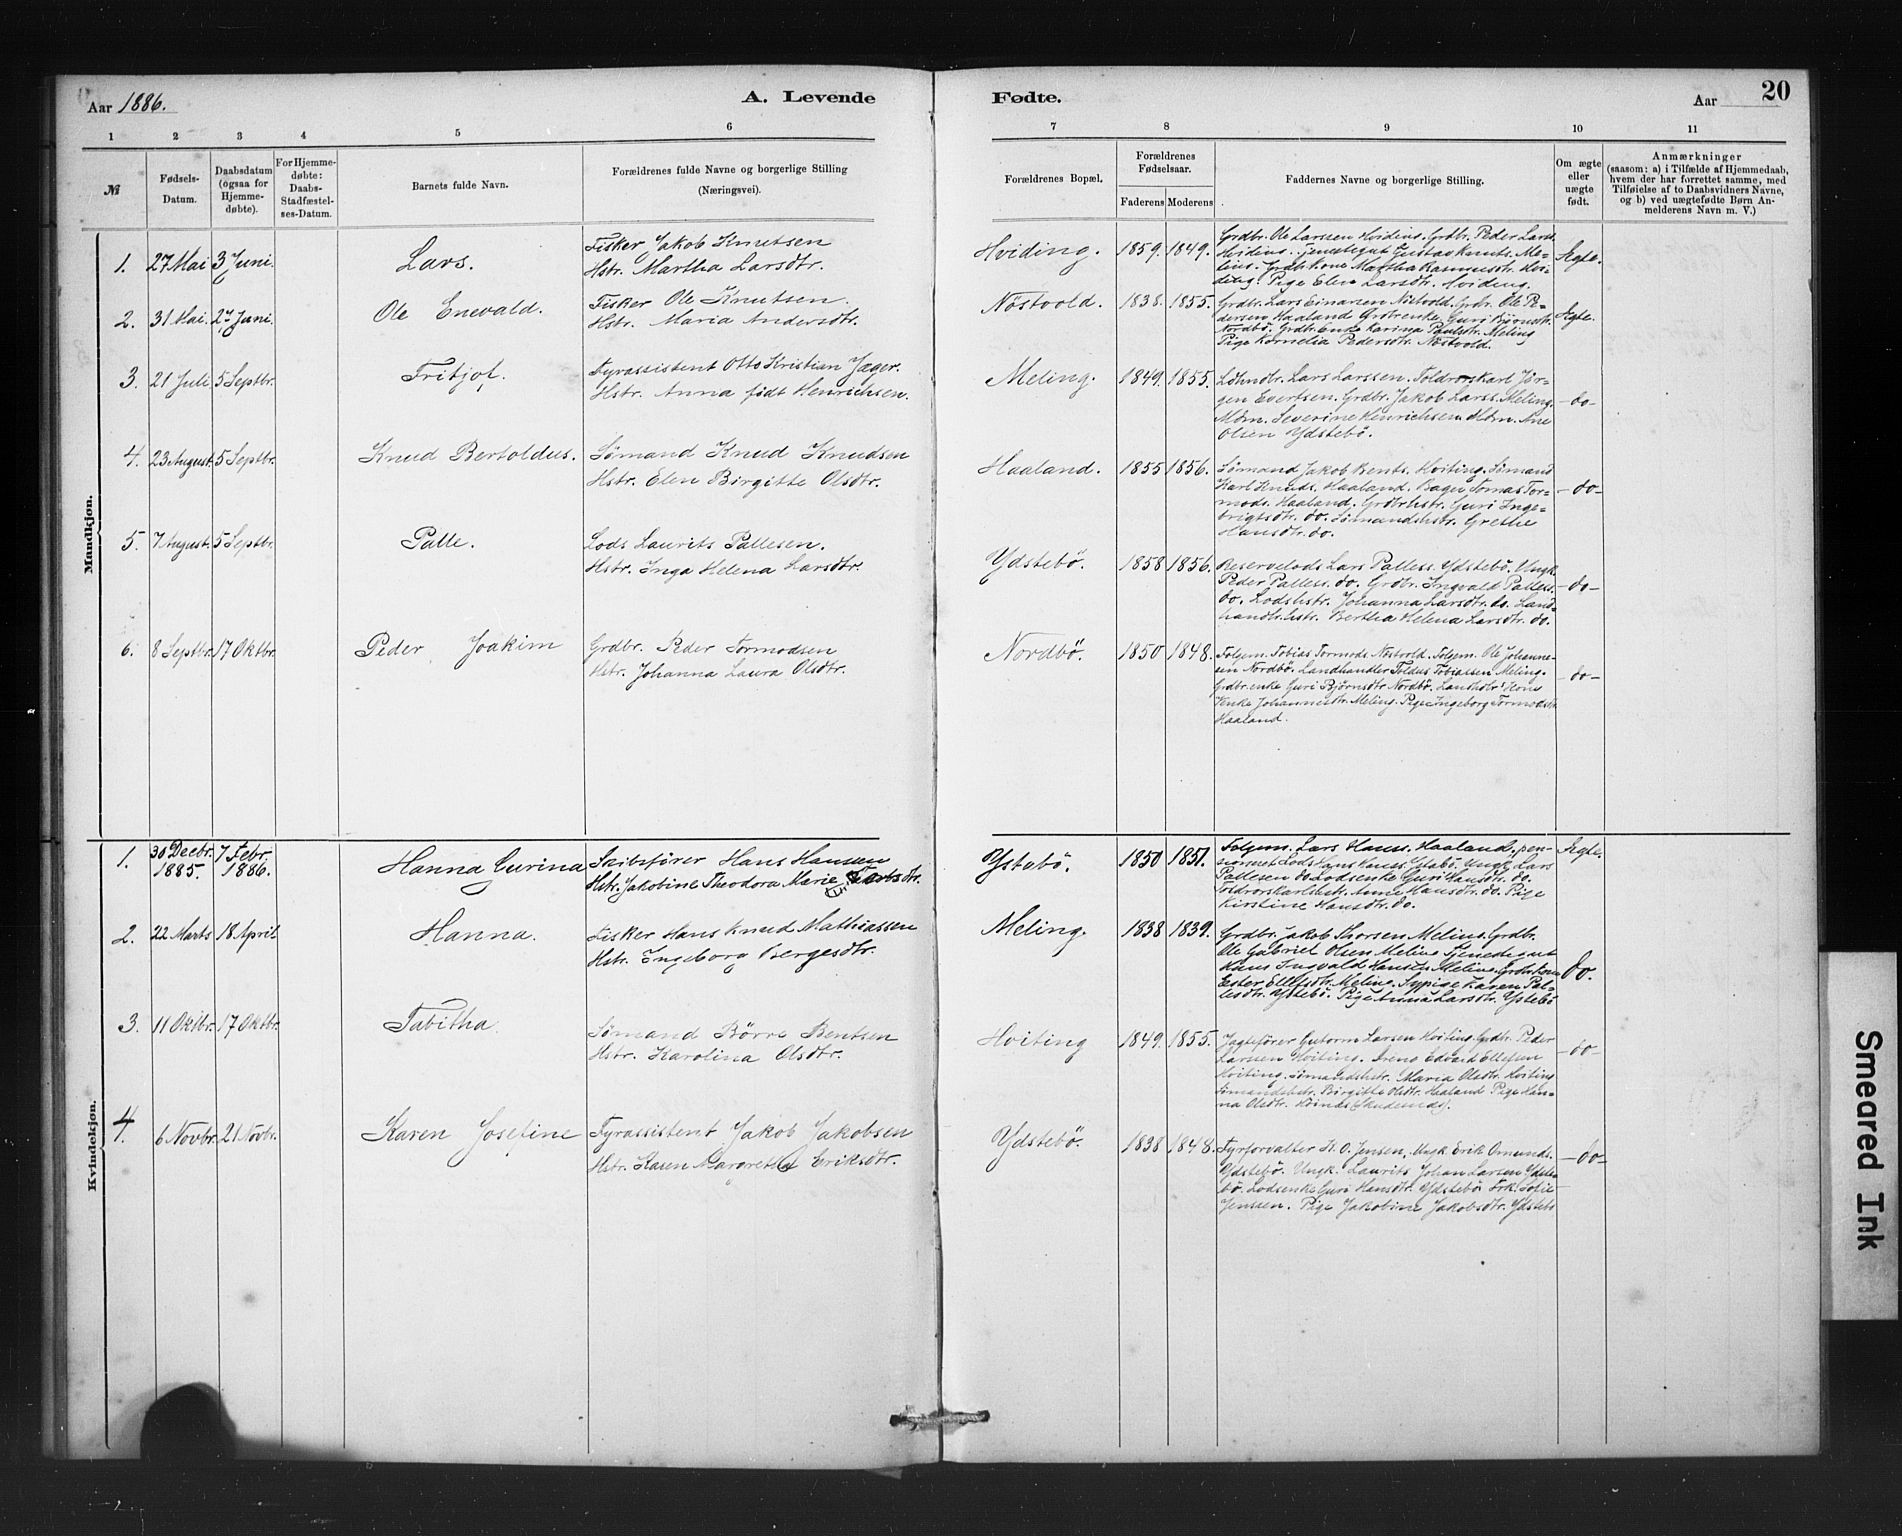 Aar 1886.
A. Levende
1 2 3 4 5 6
№
Fødsels-Datum.
Daabsdatum (ogsaa for Hjemme-døbte).
For Hjemme-døbte: Daabs-Stadfæstel-ses-Datum.
Barnets fulde Navn.
Forældrenes fulde Navne og borgerlige Stilling
(Næringsvei).
Fødte.
Aar
20
7 8 9 10 11
Forældrenes Bopæl.
Forældrenes Fødselsaar.
Faderens Moderens
Faddernes Navne og borgerlige Stilling.
Om ægte eller uægte født.
Anmærkninger
(saasom: a) i Tilfælde af Hjemmedaab,
hvem der har forrettet samme, med
Tilføielse af to Daabsvidners Navne,
og b) ved uægtefødte Børn An-
melderens Navn m. V.)
Mandkjøn.
1. 27 Mai 3 Juni. Lars. Fisker Jakob Knutsen
Hstr. Martha Larsdtr.
Hviding. 1859. 1849. Grdbr. Ole Larssen Hviding. Grdbr. Peder Larss.
Hviding. Tjenestegut Gustav Knuts. Me-
ling. Grdbrkone Martha Rasmusdtr. Hvi-
ding. Pige Elen Larsdtr. Hviding.
Ægte.
2. 31 Mai. Juni. Ole Enevald. Fisker Ole Knutsen.
Hstr. Maria Andersdtr.
Nøstvold. 1838. 1855. Grdbr. Lars Einarsen Nøstvold. Grdbr. Ole Pe-
dersen Haaland. Grdbrenke Guri Bjørnsdtr.
Nordbö. Grdbrenke Karina Paulsdtr. Meling
Pige Kornelia Pedersdtr. Nøstvold.
Ægte.
3. 21 Juli 5 Septbr. Fritjof. Fyrassistent Otto Kristian Jæger.
Hstr. Anna født Henrichsen.
Meling. 1849. 1855. Lars Larssen. Toldrorskarl Jör-
gen Evertsen. Grdbr. Jakob Larss. Meling.
Mdm. Severine Henrichsen. Mdm. Ane
Olsen Ydstebö.
-do-
4. 23 August. 5 Septbr. Knud Bertoldus. Sømand Knud Knudsen
Hstr. Elen Birgitte Olsdtr.
Haaland. 1855 1856. Sømand Jakob Bents. Hviting. Sømand
Karl Knuds. Haaland. Bager Tomas Tor-
mods. Haaland. Grdbrhstr. Guri Inge-
brigtsdtr. do. Sømandshstr. Grethe
Hansdtr. do.
-do-
5. 7 August. 5 Septbr. Palle. Lods Laurits Pallesen.
Hstr. Inga Helena Larsdtr.
Ydstebö. 1858 1856. Reservelods Lars Palless. Ydstebö. Ungk.
Peder Palless. do. Grdbr. Ingvald Palless.
do. Lodshstr. Johanna Larsdtr. do. Land-
handlrhstr. Bertha Helena Larsdtr. do.
-do-
6. 8 Septbr. 17 Oktbr. Peder Joakim Grdbr. Peder Tormodsen
Hstr. Johanna Laura Olsdtr.
Nordbö. 1850 1848. Folgem. Tobias Tormods. Nøstvold. Folgem. Ole Johanne-
sen Nordbö. Landhandler Toldus Tobiassen Meling.
Grdbr.enke Guri Björnsdtr Nordbö. Kone
Johannesdtr. Meling. Pige Ingeborg Tormodsdtr.
Haaland.
-do-
Kvindekjøn.
1. 30 Decbr. 1885. 7 Febr. 1886. Hanna Gurina Skibsfører Hans Hansen
Hstr. Jakobine Theodora Marie
Ystebö. 1850 1851. Folgem. Lars Hanss. Haaland. pen-
sionnet Lods Hans Hanss. Ystebö. Ungk. Lars
Pallesen do. Lodsenke Guri Hansdtr. do.
Toldrorskarlshstr. Anne Hansdtr. do. Pige
Kirstine Hansdtr. do.
Ægte.
2. 22 Marts 18 April Hanna. Fisker Hans Knud Mathiassen
Hstr. Ingeborg Bergesdtr.
Meling. 1838 1839. Grdbr. Jakob Thorsen Meling. Grdbr.
Ole Gabriel Olsen Meling. Tjenestegut
Hans Ingvald Hansen Meling. Grdbrkone
Ester Ellefsdtr. Meling. Sypige Karen Pal-
lesdtr. Ystebö. Pige Anna Larsdtr. Ystebö
do.
3. 11 Oktbr. 17 Oktbr. Tabitha. Sømand Börre Bentsen
Hstr. Karolina Olsdtr.
Hviting 1849. 1855. Jagtefører Gutorm Larsen Hviting. Grdbr. Peder
Larsen Hviting. Dreng Edvard Ellefsen
Hviting. Sømandshstr. Maria Olsdtr. Hviting
Sømandshstr. Birgitte Olsdtr. Haaland Pige Han-
na Olsdtr.
-do-
4. 6 Novbr. 21 Novbr. Karen Josefine Fyrassistent Jakob Jakobsen
Hstr. Karen Margrethe Eriksdtr.
Ydstebö. 1838 1848. Fyrforvalter H. O. Jensen, Ungk Erik Omunds.
Ydstebö. Ungk. Laurits Johan Larsen Ydste-
bö. Lodsenke Guri Hansdtr. Ydstebö Frk. Sofie
Jensen. Pige Jakobine Jakobsdtr. Ydstebö
-do-
Smeared Ink